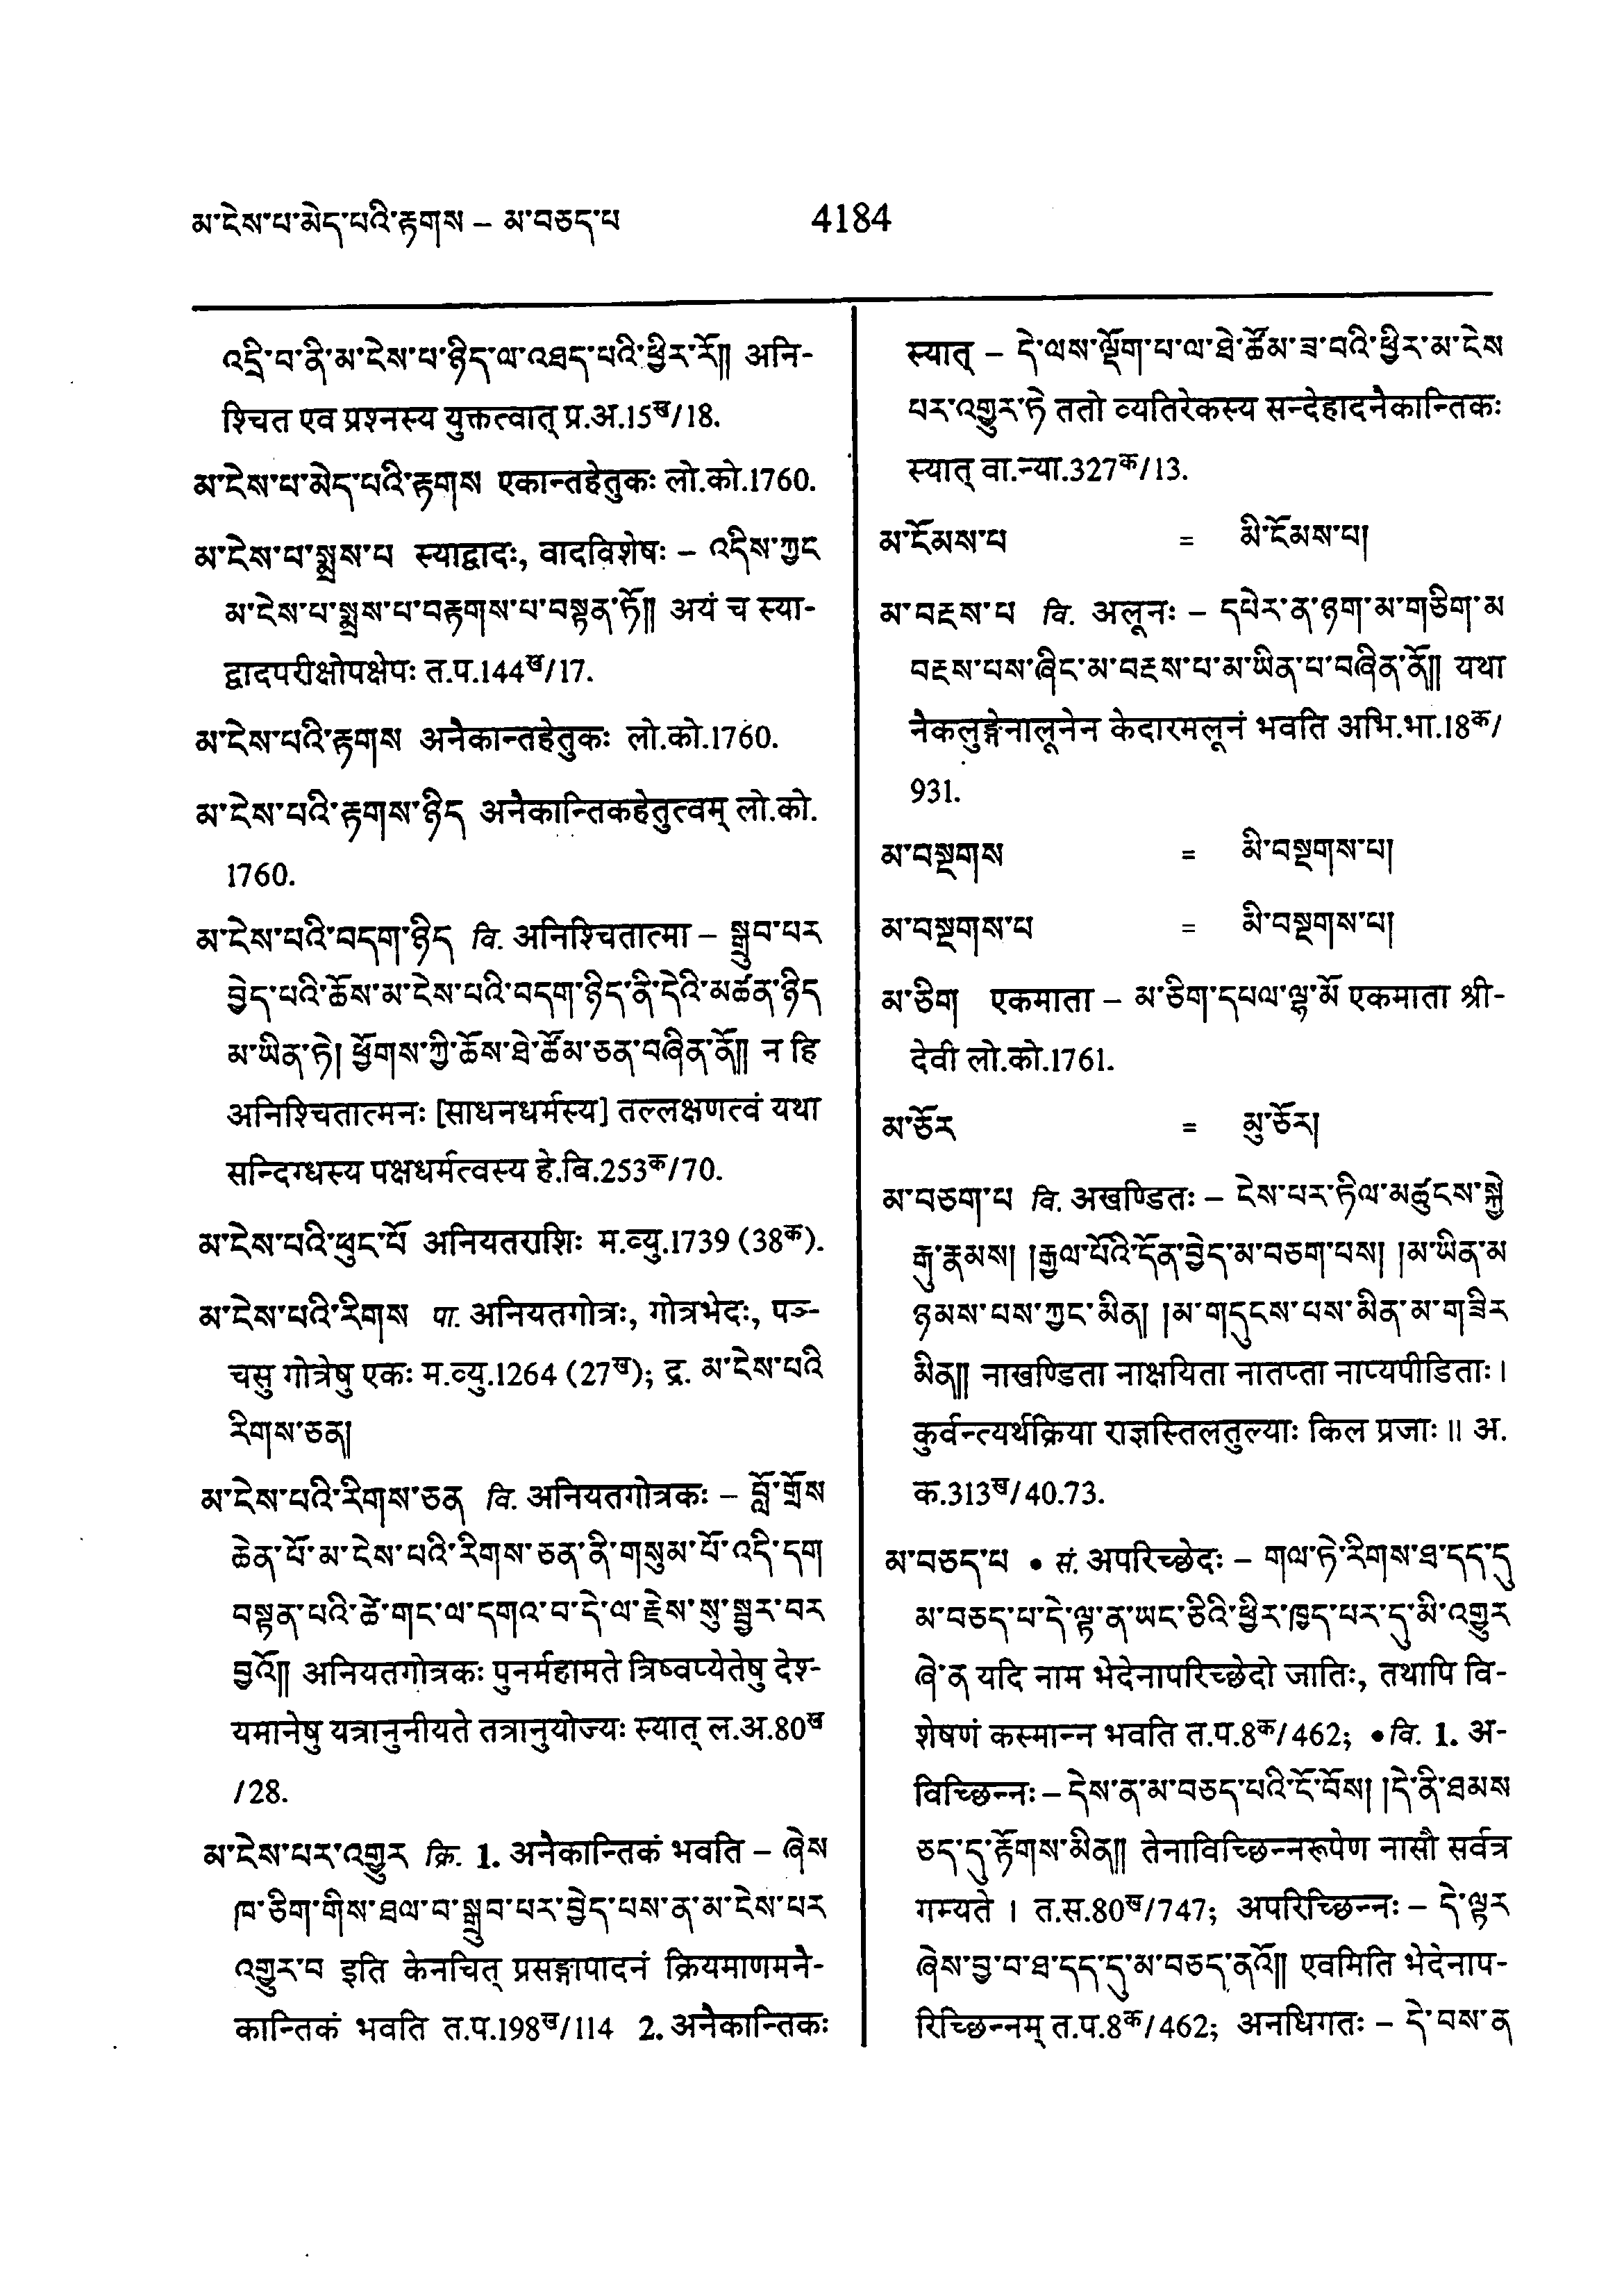 མ་ངེས་པ་མེད་པའི་རྟགས – མ་བཅད་པ
4184
འདྲི་བ་ནི་མ་ངེས་པ་ཉིད་ལ་འཐད་པའི་ཕྱིར་རོ།། अनि-
श्चित एव प्रश्नस्य युक्तत्वात् प्र.अ.15ख/18.
མ་ངེས་པ་མེད་པའི་རྟགས एकान्तहेतुकः लो.को.1760.
མ་ངེས་པ་སྨྲས་པ स्याद्वादः, वादविशेषः – འདིས་ཀྱང
མ་ངེས་པ་སྨྲས་པ་བརྟགས་པ་བསྟན་ཏོ།། अयं च स्या-
द्वादपरीक्षोपक्षेपः त.प.144ख/17.
མ་ངེས་པའི་རྟགས अनैकान्तहेतुकः लो.को.1760.
མ་ངེས་པའི་རྟགས་ཉིད अनैकान्तिकहेतुत्वम् लो.को.
1760.
མ་ངེས་པའི་བདག་ཉིད वि. अनिश्चितात्मा – སྒྲུབ་པར
བྱེད་པའི་ཆོས་མ་ངེས་པའི་བདག་ཉིད་ནི་དེའི་མཚན་ཉིད
མ་ཡིན་ཏེ། ཕྱོགས་ཀྱི་ཆོས་ཐེ་ཚོམ་ཅན་བཞིན་ནོ།། न हि
अनिश्चितात्मनः [साधनधर्मस्य] तल्लक्षणत्वं यथा
सन्दिग्धस्य पक्षधर्मत्वस्य हे.बि.253क/70.
མ་ངེས་པའི་ཕུང་པོ अनियतराशिः म.व्यु.1739 (38क).
མ་ངེས་པའི་རིགས पा. अनियतगोत्रः, गोत्रभेदः, पञ्-
चसु गोत्रेषु एकः म.व्यु.1264 (27ख); द्र. མ་ངེས་པའི
རིགས་ཅན།
མ་ངེས་པའི་རིགས་ཅན वि. अनियतगोत्रकः – བློ་གྲོས
ཆེན་པོ་མ་ངེས་པའི་རིགས་ཅན་ནི་གསུམ་པོ་འདི་དག
བསྟན་པའི་ཚེ་གང་ལ་དགའ་བ་དེ་ལ་རྗེས་སུ་སྦྱར་བར
བྱའོ།། अनियतगोत्रकः पुनर्महामते त्रिष्वप्येतेषु देश्-
यमानेषु यत्रानुनीयते तत्रानुयोज्यः स्यात् ल.अ.80ख
/28.
མ་ངེས་པར་འགྱུར क्रि. 1. अनैकान्तिकं भवति – ཞེས
ཁ་ཅིག་གིས་ཐལ་བ་སྒྲུབ་པར་བྱེད་པས་ན་མ་ངེས་པར
འགྱུར་བ इति केनचित् प्रसङ्गापादनं क्रियमाणमनै-
कान्तिकं भवति त.प.198ख/114 2. अनैकान्तिकः
स्यात् – དེ་ལས་ལྡོག་པ་ལ་ཐེ་ཚོམ་ཟ་བའི་ཕྱིར་མ་ངེས
པར་འགྱུར་ཏེ ततो व्यतिरेकस्य सन्देहादनैकान्तिकः
स्यात् वा.न्या.327क/13.
མ་ངོམས་པ = མི་ངོམས་པ།
མ་བརྔས་པ वि. अलूनः – དཔེར་ན་ཉག་མ་གཅིག་མ
བརྔས་པས་ཞིང་མ་བརྔས་པ་མ་ཡིན་པ་བཞིན་ནོ།། यथा
नैकलुङ्गेनालूनेन केदारमलूनं भवति अभि.भा.18क/
931.
མ་བསྔགས = མི་བསྔགས་པ།
མ་བསྔགས་པ = མི་བསྔགས་པ།
མ་ཅིག एकमाता – མ་ཅིག་དཔལ་ལྷ་མོ एकमाता श्री-
देवी लो.को.1761.
མ་ཅོར = མུ་ཅོར།
མ་བཅག་པ वि. अखण्डितः – ངེས་པར་ཏིལ་མཚུངས་སྐྱེ
རྒུ་རྣམས། །རྒྱལ་པོའི་དོན་བྱེད་མ་བཅག་པས། །མ་ཡིན་མ
ཉམས་པས་ཀྱང་མིན། །མ་གདུངས་པས་མིན་མ་གཟིར
མིན།། नाखण्डिता नाक्षयिता नातप्ता नाप्यपीडिताः।
कुर्वन्त्यर्थक्रिया राज्ञस्तिलतुल्याः किल प्रजाः॥ अ.
क.313ख/40.73.
མ་བཅད་པ • सं. अपरिच्छेदः – གལ་ཏེ་རིགས་ཐ་དད་དུ
མ་བཅད་པ་དེ་ལྟ་ན་ཡང་ཅིའི་ཕྱིར་ཁྱད་པར་དུ་མི་འགྱུར
ཞེ་ན यदि नाम भेदेनापरिच्छेदो जातिः, तथापि वि-
शेषणं कस्मान्न भवति त.प.8क/462; •वि. 1. अ-
विच्छिन्नः – དེས་ན་མ་བཅད་པའི་ངོ་བོས། །དེ་ནི་ཐམས
ཅད་དུ་རྟོགས་མིན།། तेनाविच्छिन्नरूपेण नासौ सर्वत्र
गम्यते। त.स.80ख/747; अपरिच्छिन्नः – དེ་ལྟར
ཞེས་བྱ་བ་ཐ་དད་དུ་མ་བཅད་ནའོ།། एवमिति भेदेनाप-
रिच्छिन्नम् त.प.8क/462; अनधिगतः – དེ་བས་ན